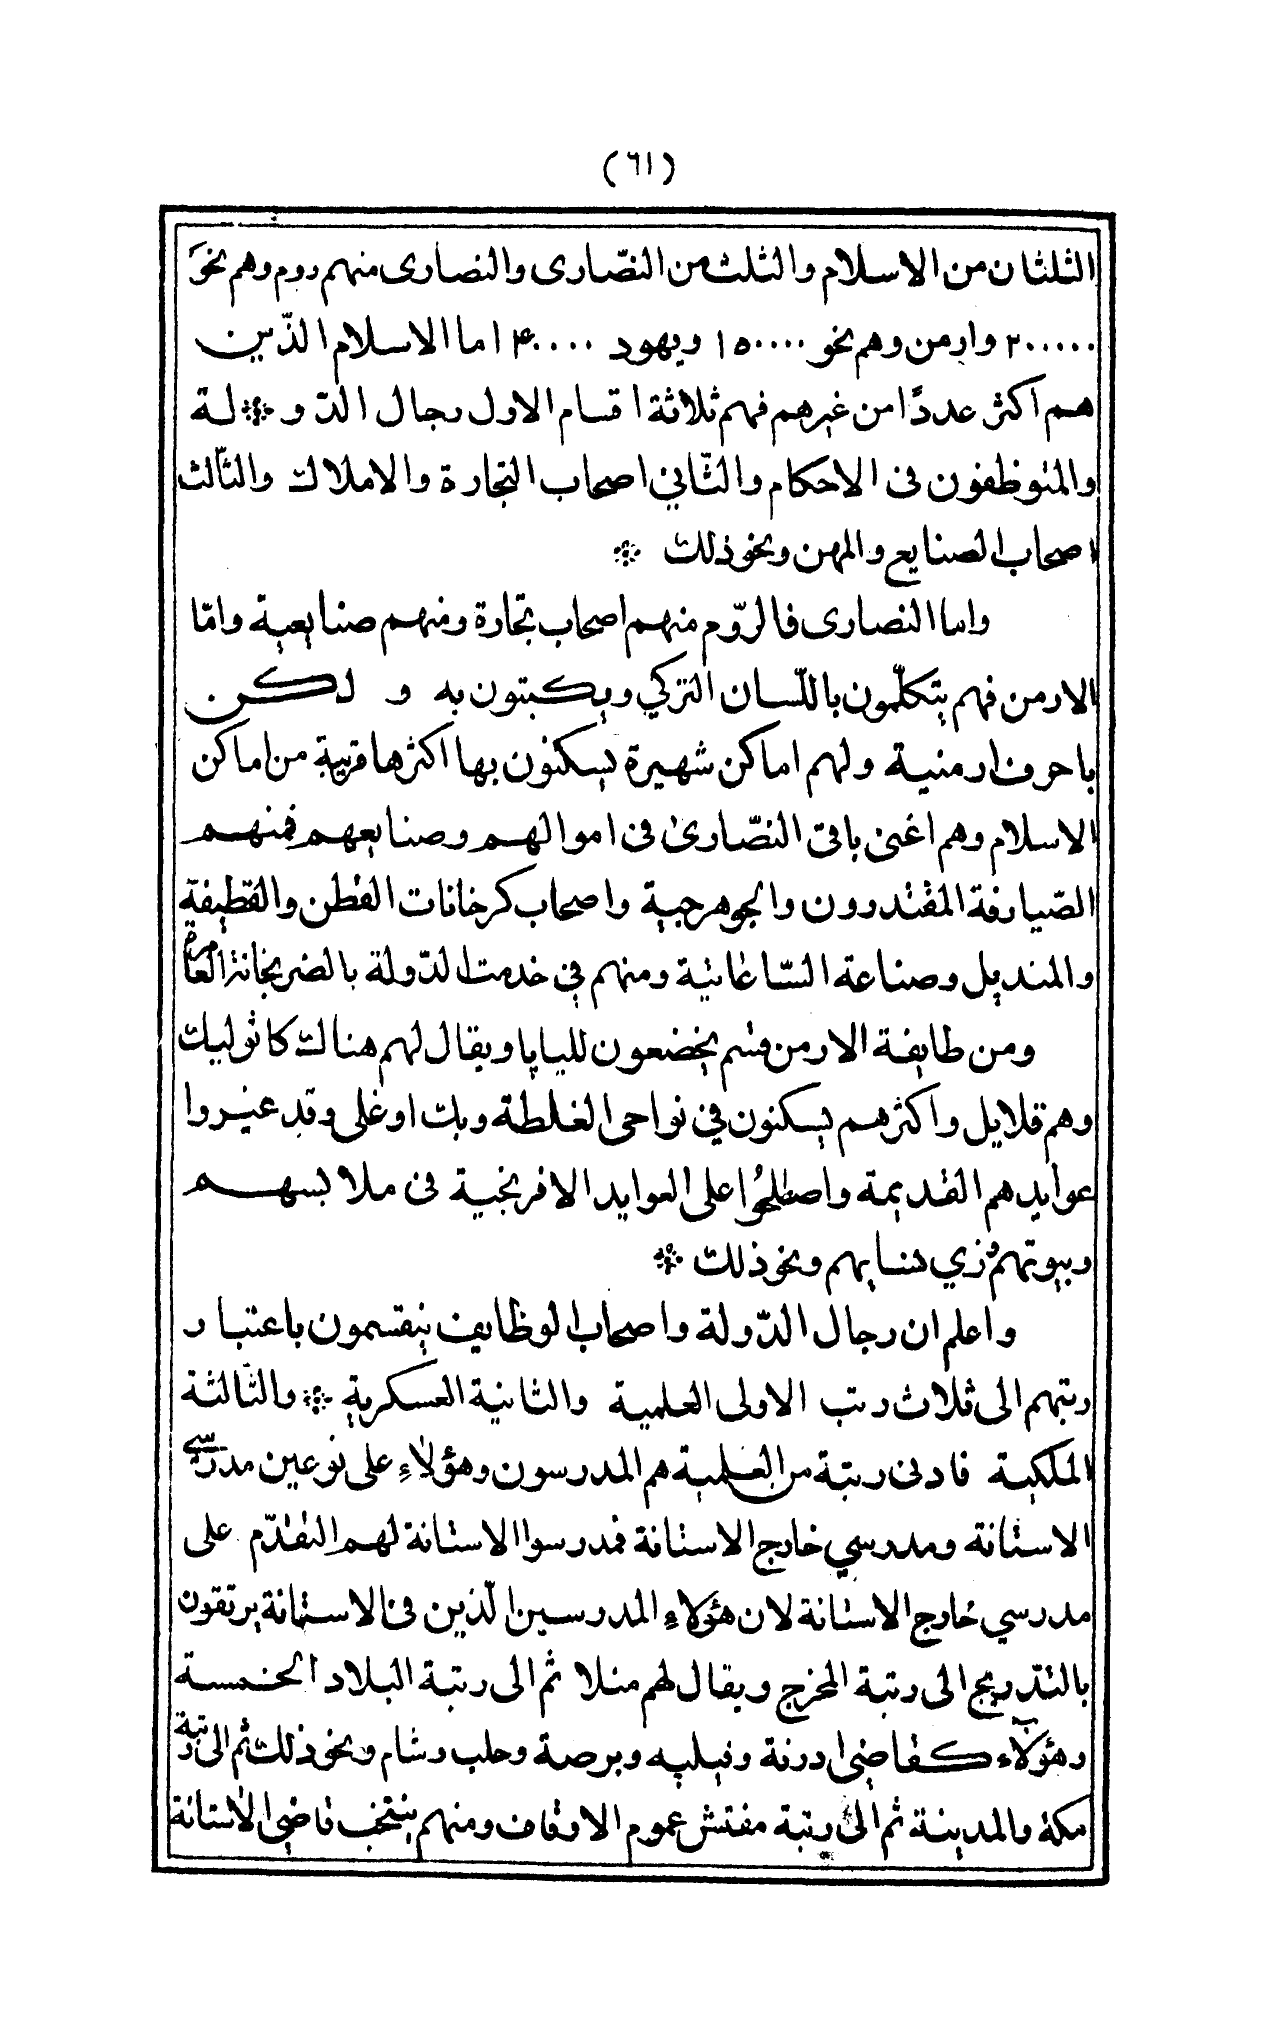 (٦١)
الثلثان من الاسلام والثلث من النصّارى والنصارى منهم روم وهم نحوَ
٢٠٠٠٠٠ وارمن وهم نحو ١٥٠٠٠٠ ويهود ۴٠٠٠٠ اما الاسلام الذّين
هم اكثر عددًا من غيرهم فهم ثلاثة اقسام الاول رجال الدّو ٭ لة
والمتوظفون فى الاحكام والثّاني اصحاب التجارة والاملاك والثّالث
اصحاب الصنايع والمهن ونحو ذلك ٭
واما النصارى فالرّوم منهم اصحاب تجارة ومنهم صنايعية وامّا
الارمن فهم يتكلّمون باللّسان التركي ويكتبتون به و لكن
باحرف ارمنية ولهم اماكن شهيرة يسكنون بها اكثرها قريبة من اماكن
الاسلام وهم اغنى باقى النصّارىٰ فى اموالهم وصنايعهم فمنهم
الصّيارفة المقتدرون والجوهرجية واصحاب كرخانات القطن والقطيفة
والمنديل وصناعة السّاعاتية ومنهم في خدمت الدّولة بالضربخانة العامرة
ومن طايفة الارمن قسم يخضعون للپاپا ويقال لهم هناك كاثوليك
وهم قلايل واكثرهم يسكنون في نواحى الغلطة وبك اوغلى وقد غيروا
عوايدهم القديمة واصطلحُوا على العوايد الافرنجية فى ملابسهم
وبيوتهم وزي نسايهم ونحو ذلك ٭
واعلم ان رجال الدّولة واصحاب الوظايف ينقسمون باعتبار
رتبهم الى ثلاث رتب الاولى العلمية والثانية العسكرية ٭ والثّالثة
الملكية فادنى رتبة من العلمية هم المدرسون وهؤلاءِ على نوعين مدرسي
الاستانة ومدرسي خارج الاستانة فمدرسوا الاستانة لهم التقدّم على
مدرسي خارج الاستانة لان هؤلاءِ المدرسين الّذين فى الاستانة يرتقون
بالتدّريج الى رتبة المخرج ويقال لهم منلا ثم الى رتبة البلاد الخمسة
وهؤلاء كقاضى ادرنة وفيلبه وبرصة وحلب وشام ونحو ذلك ثم الى رتبة
مكة والمدينة ثم الى رتبة مفتش عموم الاوقاف ومنهم ينتخب قاضى الاستانة